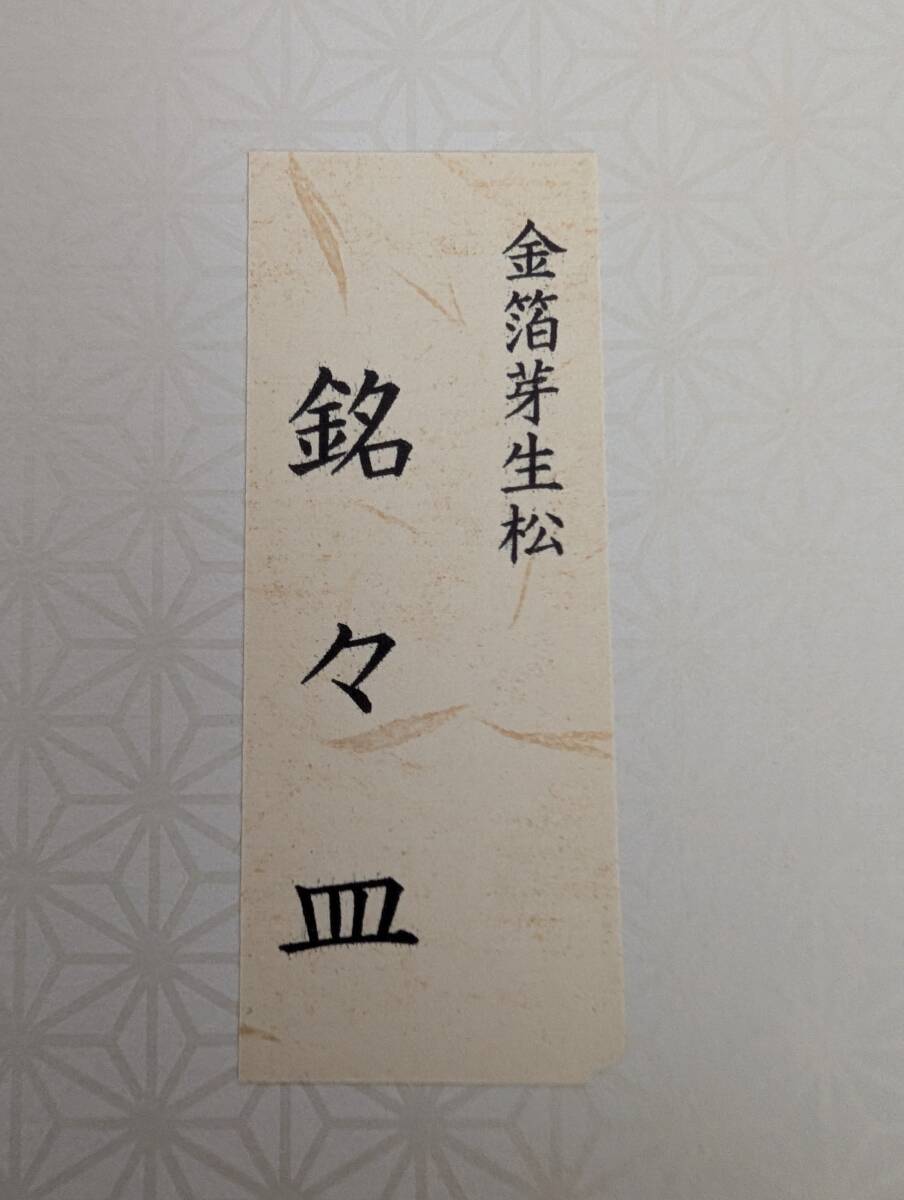 金箔芽生松
銘々皿